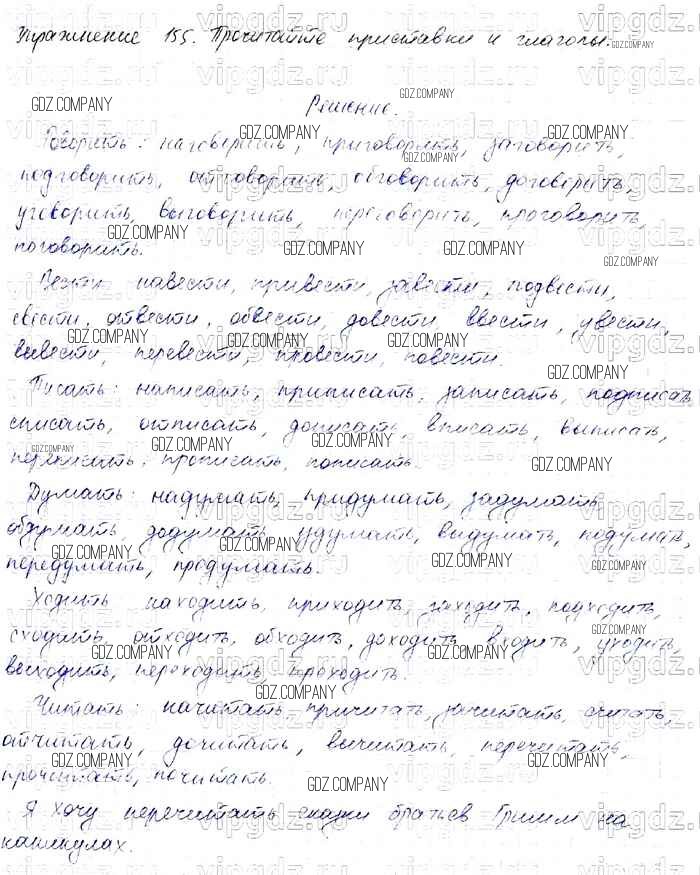 Упражнение 155. Прочитайте приставки и глаголы.
Решение.
Говорить: наговорить, приговорить, заговорить,
подговорить, отговорить, обговорить, договорить,
уговорить, выговорить, переговорить, проговорить,
поговорить.
Вести: навести, привести, завести, подвести,
свести, отвести, обвести, довести, ввести, увести,
вывести, перевести, провести, повести.
Писать: написать, приписать, записать, подписать,
списать, отписать, дописать, вписать, выписать,
переписать, прописать, пописать.
Думать: надумать, придумать, задумать,
обдумать, додумать, удумать, выдумать, подумать,
передумать, продумать.
Ходить: находить, приходить, заходить, подходить,
сходить, отходить, обходить, доходить, входить, уходить,
выходить, переходить, проходить.
Читать: начитать, причитать, зачитать, считать,
отчитать, дочитать, вычитать, перечитать,
прочитать, почитать.
Я хочу перечитать сказки братьев Гримм на
каникулах.
GDZ.COMPANY
vipgdz.ru